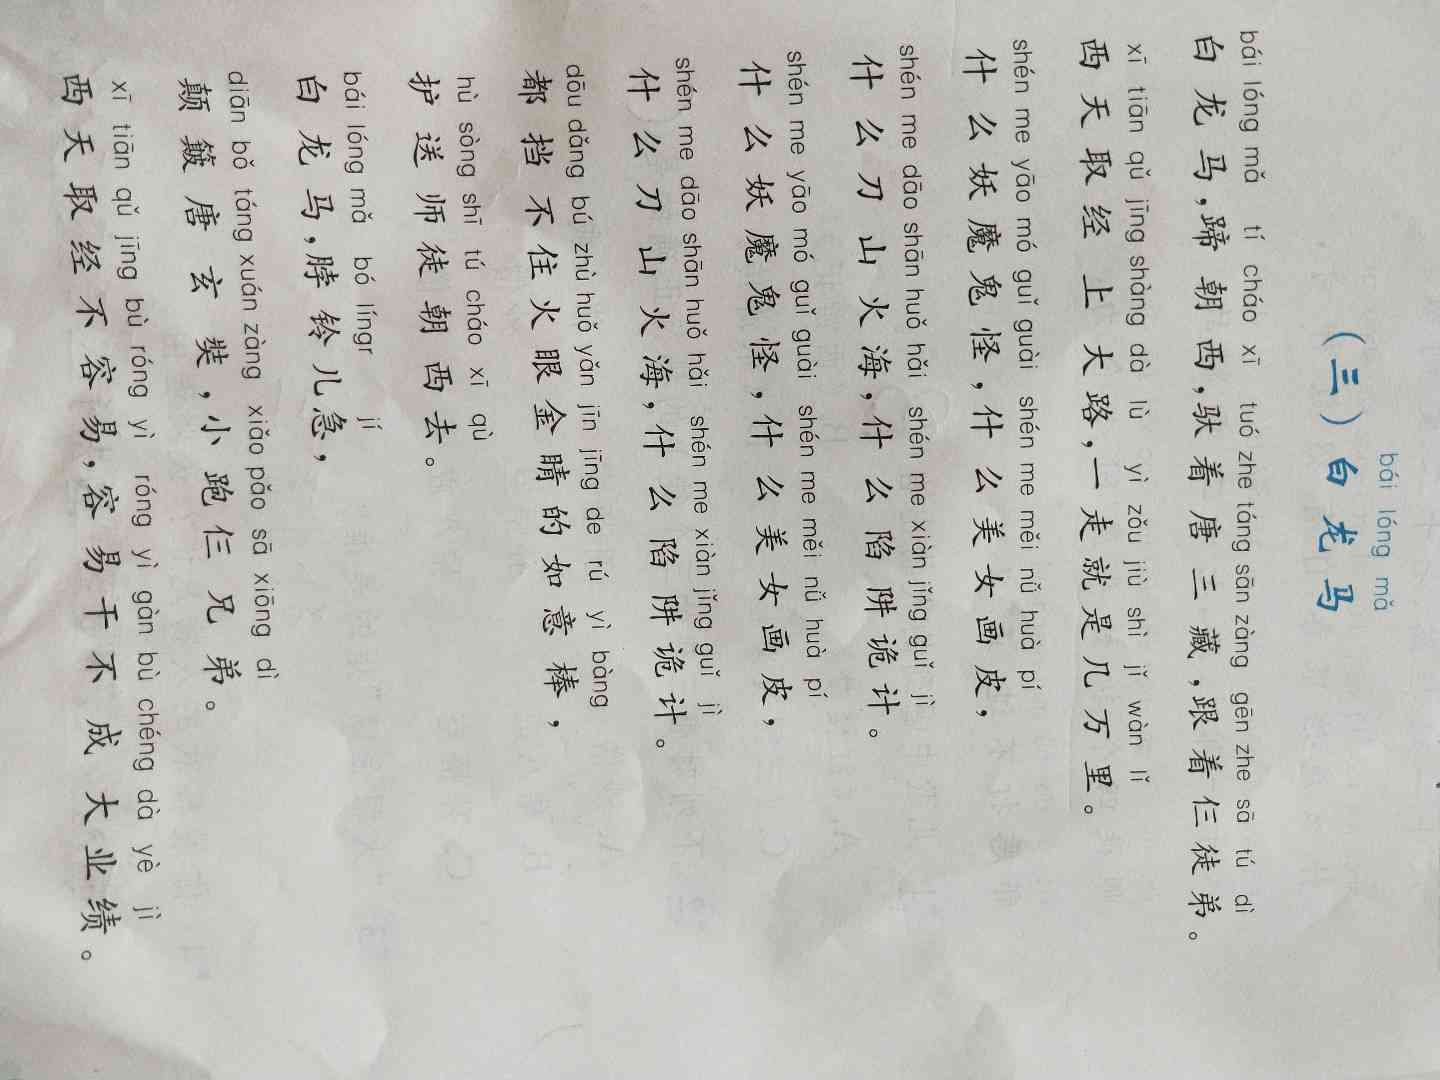 bái lóng mǎ
（三）白龙马
bái lóng mǎ tí cháo xī tuó zhe táng sān zàng gēn zhe sā tú dì
白龙马，蹄朝西，驮着唐三藏，跟着仨徒弟。
xī tiān qǔ jīng shàng dà lù yì zǒu jiù shì jǐ wàn lǐ
西天取经上大路，一走就是几万里。
shén me yāo mó guǐ guài shén me měi nǚ huà pí
什么妖魔鬼怪，什么美女画皮，
shén me dāo shān huǒ hǎi shén me xiàn jǐng guǐ jì
什么刀山火海，什么陷阱诡计。
shén me yāo mó guǐ guài shén me měi nǚ huà pí
什么妖魔鬼怪，什么美女画皮，
shén me dāo shān huǒ hǎi shén me xiàn jǐng guǐ jì
什么刀山火海，什么陷阱诡计。
dōu dǎng bú zhù huǒ yǎn jīn jīng de rú yì bàng
都挡不住火眼金睛的如意棒，
hù sòng shī tú cháo xī qù
护送师徒朝西去。
bái lóng mǎ bó língr jí
白龙马，脖铃儿急，
diān bǒ táng xuán zàng xiǎo pǎo sā xiōng dì
颠簸唐玄奘，小跑仨兄弟。
xī tiān qǔ jīng bù róng yì róng yì gàn bù chéng dà yè jì
西天取经不容易，容易干不成大业绩。